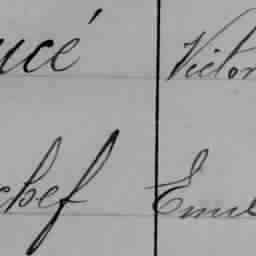 ucé Victor
chef Emil